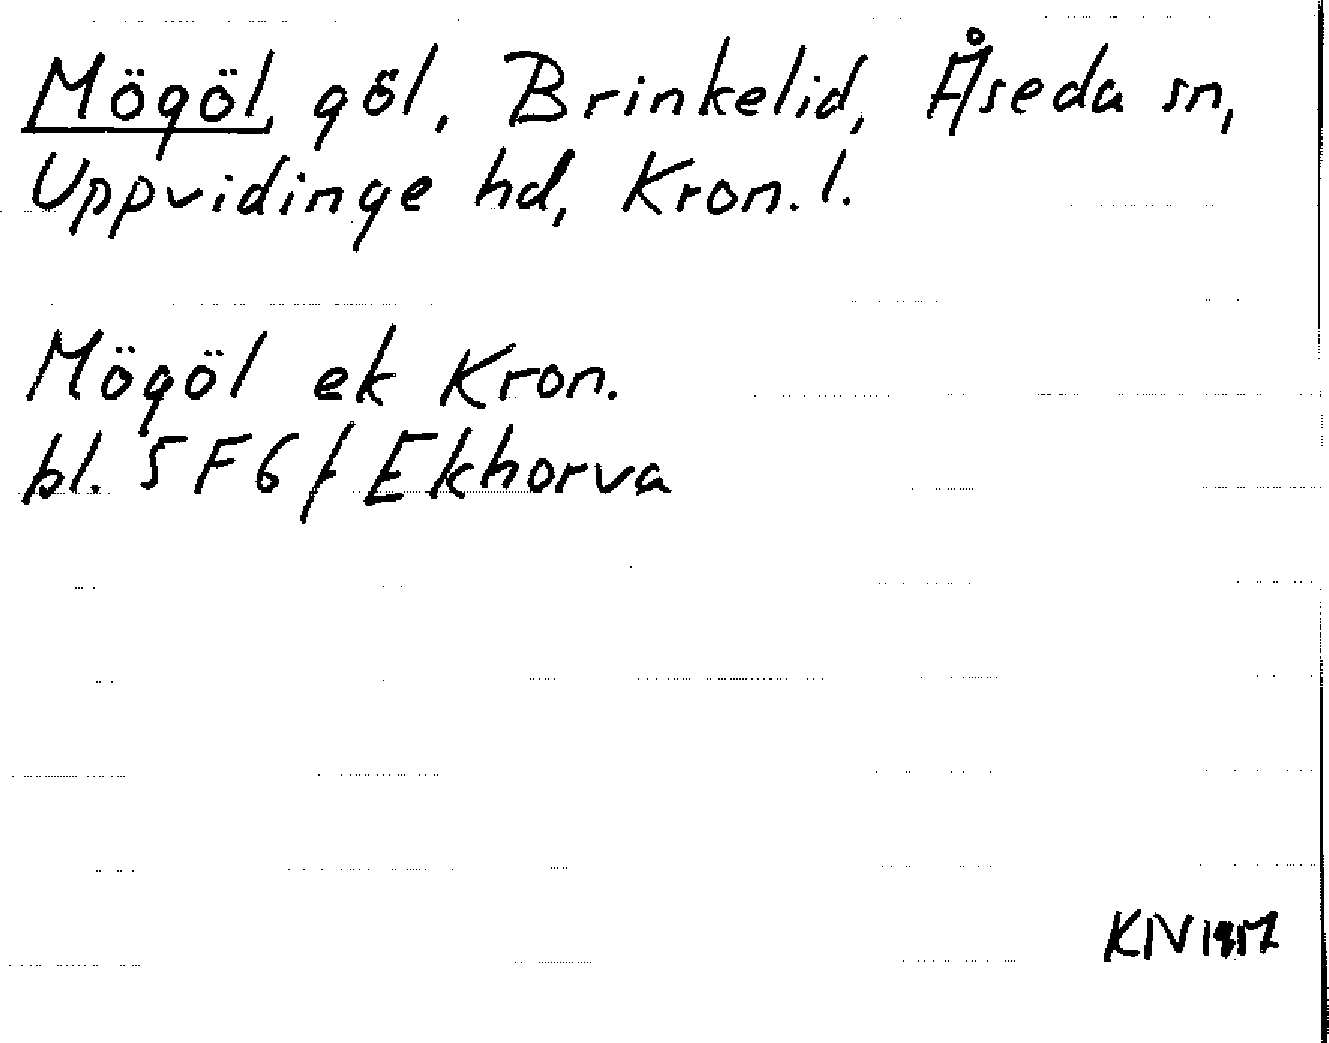 Mögöl, göl, Brinkelid, Åseda sn,
Uppvidinge hd, Kron. l.
Mögöl ek Kron.
bl. 5F6f Ekhorva